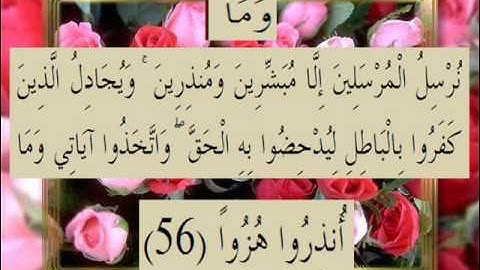 وَمَا
نُرْسِلُ الْمُرْسَلِينَ إِلَّا مُبَشِّرِينَ وَمُنذِرِينَ ۚ وَيُجَادِلُ الَّذِينَ
كَفَرُوا بِالْبَاطِلِ لِيُدْحِضُوا بِهِ الْحَقَّ ۖ وَاتَّخَذُوا آيَاتِي وَمَا
أُنذِرُوا هُزُواً (56)